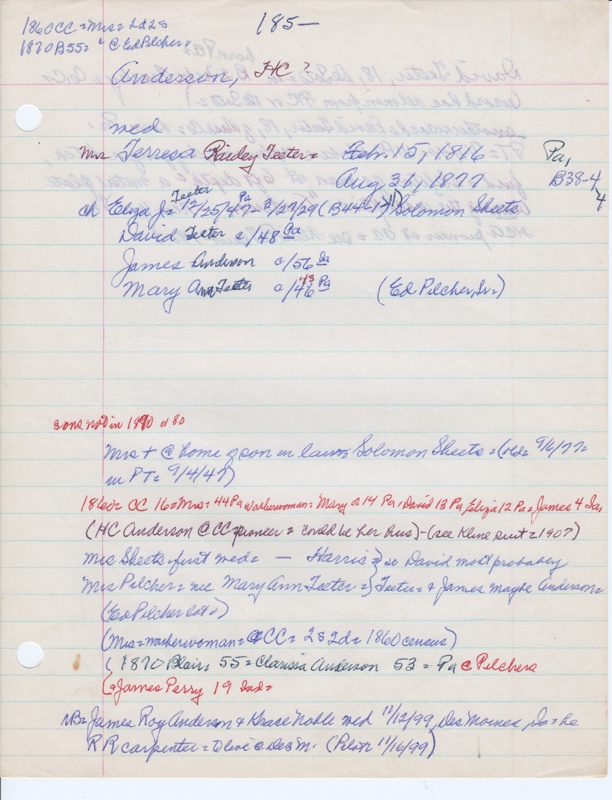 185—
1860CC=Mrs=2d2s
1870B55= " @ Ed Pilcher=
Anderson, HC?
med
Mrs Terresa Teeter= Feb. 15, 1816 Pa,
Aug 31, 1877 B38-4
4
ch Eliza J= Teeter 12/25/47 Pa - 2/27/29 (B44-1) Solomon Sheets
David Teeter c/48 Pa
James Anderson c/56 Ia
Mary Ann Teeter c/46 '43 Pa (Ed Pilcher, Sr=)
sons not in 1870 or 80
Mrs + @ home of son in law= Solomon Sheets = (obt= 9/6/77=
in PT= 9/4/47)
1860= CC 16=Mrs= 44 Pa washerwoman= Mary 14 Pa= David 13 Pa, Eliza 12 Pa= James 4 Ia,
(HC Anderson @ CC pioneer = could be her hus) - (see Kline suit = 190?)
Mrs Sheets=first med= — Harris= so David most probably
Mrs Pilcher= nee Mary Ann Teeter = Teeter= & James maybe Anderson=
(Ed Pilcher
(Mrs=washerwoman= @ CC= 2s2d= 1860 census)
(1870 Blair, 55=Clarissa Anderson 53 = Pa @ Pilchers
James Perry 19 Ind=
NB= James Roy Anderson & Grace Noble med 11/12/99, Des Moines, Ia= he
RR carpenter= to live @ Des M. (Pilot 11/16/99)